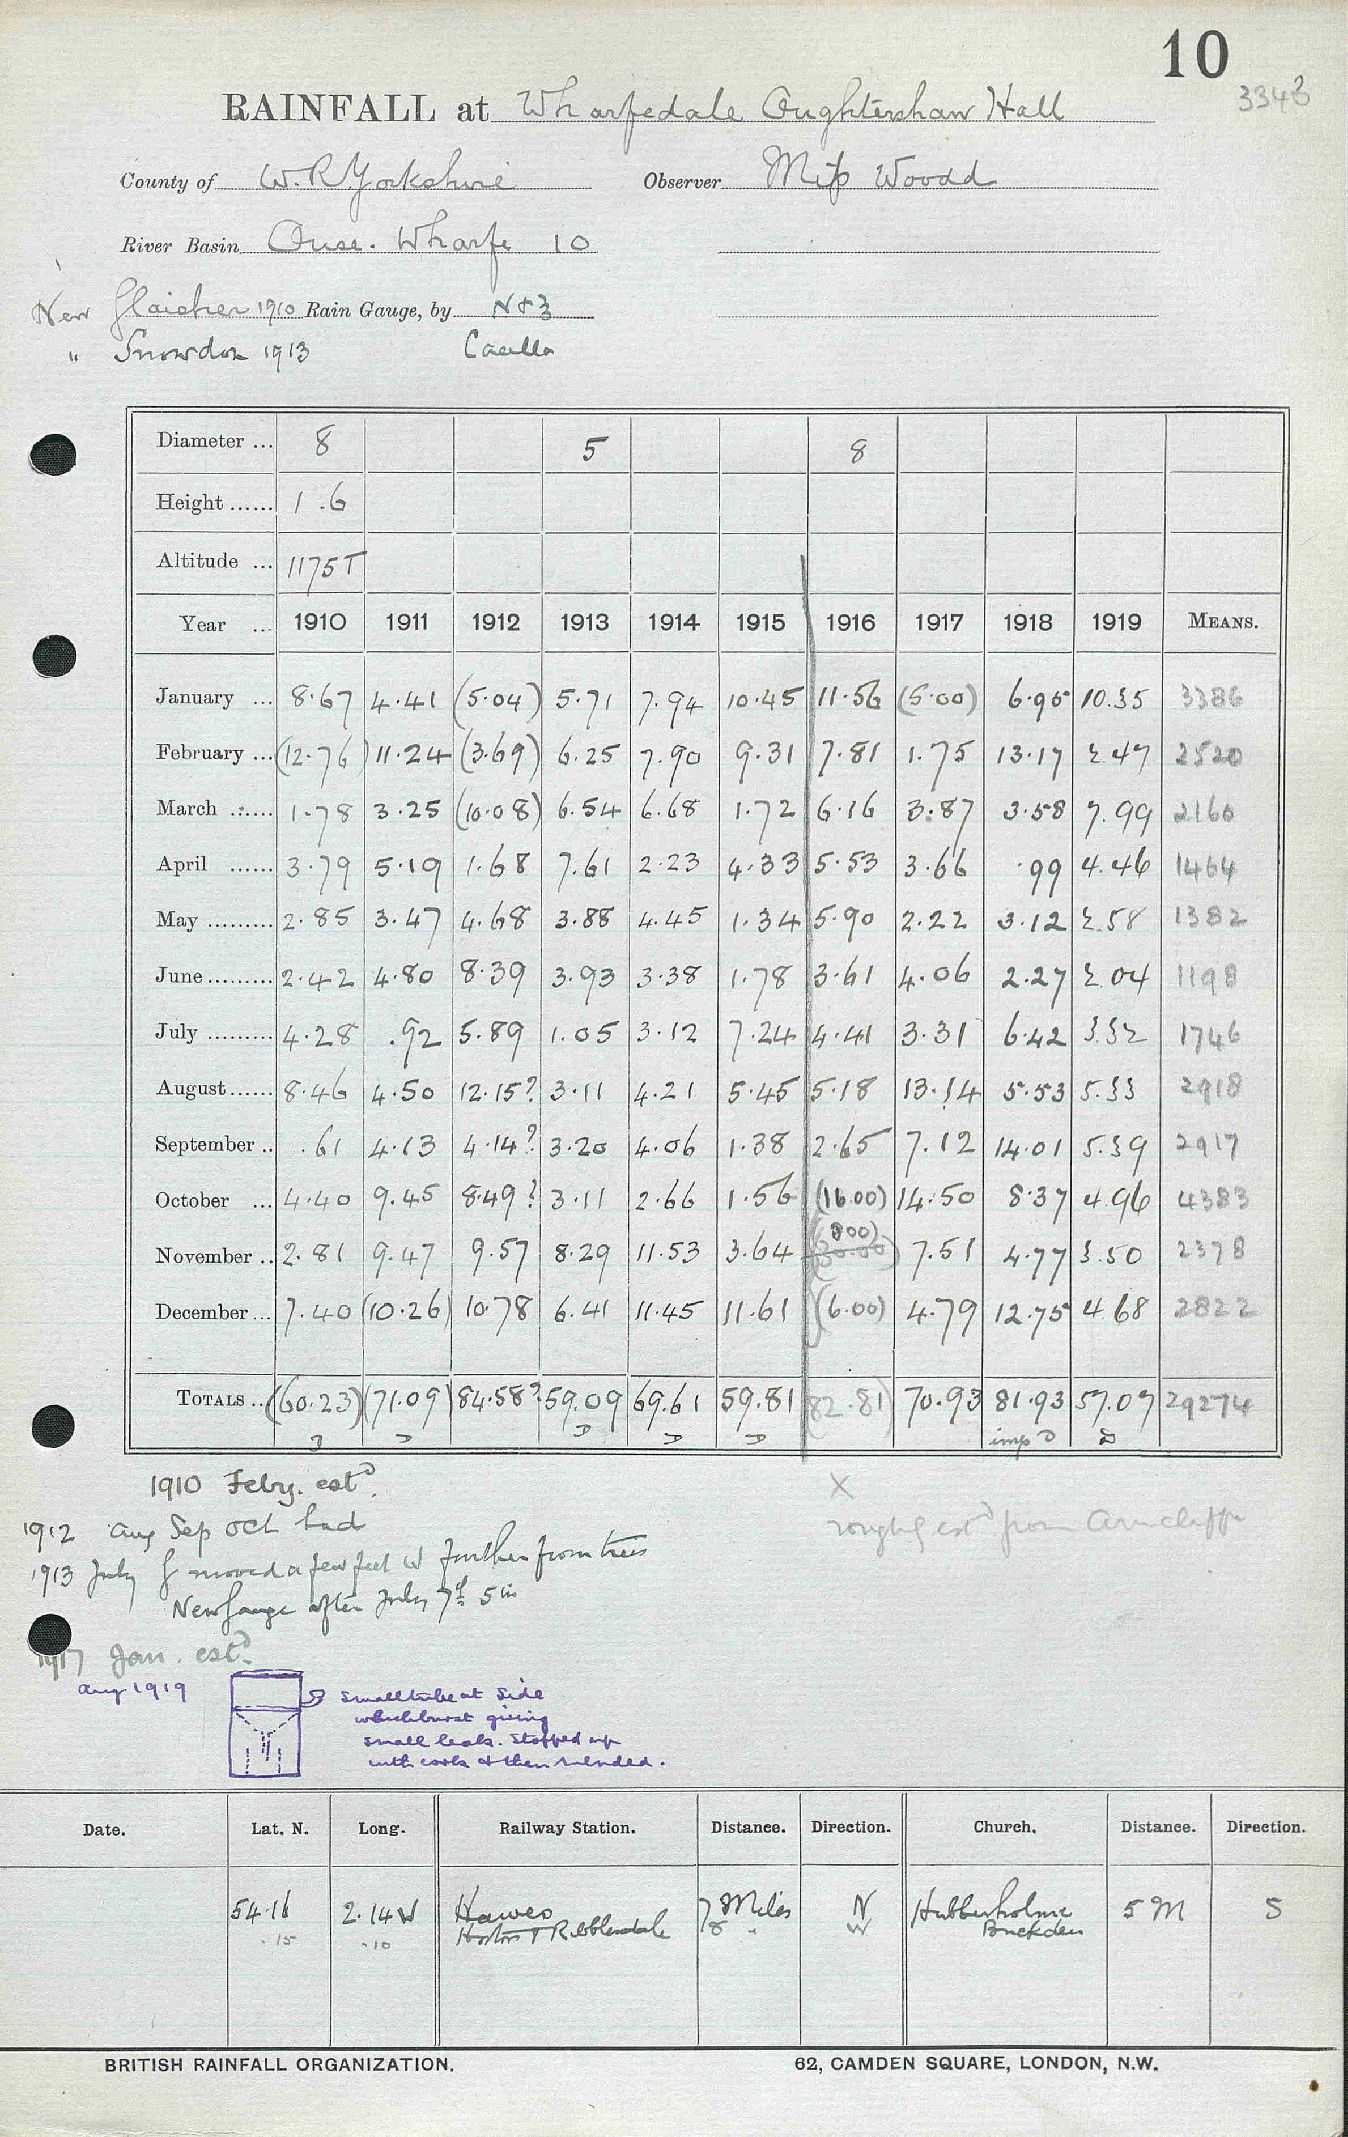 10
3343
RAINFALL at Wharfedale Oughtershaw Hall
County of W.R Yorkshire Observer Miss Woodd
River Basin Ouse. Wharfe 10
New Glaisher 1910 Rain Gauge, by N & Z
" Snowdon 1913 Casella
Diameter ... 8 5 8
Height ...... 1.6
Altitude ... 1175T
Year ... 1910 1911 1912 1913 1914 1915 1916 1917 1918 1919 MEANS.
January ... 8.67 4.41 (5.04) 5.71 7.94 10.45 11.56 (5.00) 6.95 10.35 3386
February ... (12.76) 11.24 (3.69) 6.25 7.90 9.31 7.81 1.75 13.17 2.47 2520
March ...... 1.78 3.25 (10.08) 6.54 6.68 1.72 6.16 3.87 3.58 7.99 2160
April ...... 3.79 5.19 1.68 7.61 2.23 4.33 5.53 3.66 .99 4.46 1464
May ......... 2.85 3.47 4.68 3.88 4.45 1.34 5.90 2.22 3.12 2.58 1382
June ......... 2.42 4.80 8.39 3.93 3.38 1.78 3.61 4.06 2.27 2.04 1198
July ......... 4.28 .92 5.89 1.05 3.12 7.24 4.41 3.31 6.42 3.32 1746
August ...... 8.46 4.50 12.15? 3.11 4.21 5.45 5.18 13.14 5.53 5.33 2918
September .. .61 4.13 4.14? 3.20 4.06 1.38 2.65 7.12 14.01 5.39 2917
October ... 4.40 9.45 8.49? 3.11 2.66 1.56 (16.00) 14.50 8.37 4.96 4383
(8.00)
November .. 2.81 9.47 9.57 8.29 11.53 3.64 7.51 4.77 3.50 2378
December ... 7.40 (10.26) 10.78 6.41 11.45 11.61 (6.00) 4.79 12.75 4.68 2822
TOTALS .. (60.23) (71.09) 84.58? 59.09 69.61 59.81 (82.81) 70.93 81.93 57.07 29274
D D D D D imp D D
1910 Feby. estd.
X
roughly estd from Arncliffe
1912 Aug Sep Oct bad
1913 July G moved a few feet W further from trees
New Gauge after July 7th 5 in
1917 Jan. estd.
Aug 1919
Small tube at side
which burst giving
small leak. Stopped up
with cork & then mended.
Date. Lat. N. Long. Railway Station. Distance. Direction. Church. Distance. Direction.
54.16 2.14W Hawes 7 Miles N Hubberholme 5 M S
.15 .10 Horton I Ribblesdale 8 " W Buckden
BRITISH RAINFALL ORGANIZATION. 62, CAMDEN SQUARE, LONDON, N.W.